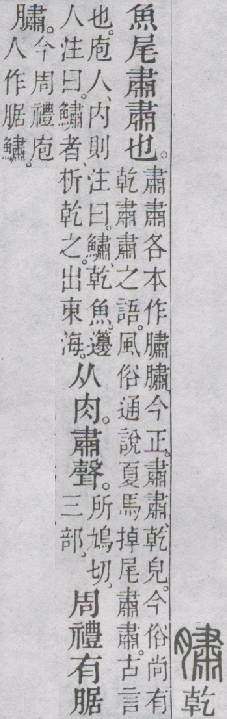 䐹乾
魚尾肅肅也。
肅肅各本作䐹䐹、今正。肅肅、乾皃。今俗尚有
乾肅肅之語。風俗通說夏馬掉尾肅肅。古言
也。庖人內則注曰。鱐、乾魚。邊
人注曰。鱐者析乾之。出東海。
从肉。肅聲。
所鳩切。
三部。
周禮有腒
䐹。
今周禮庖
人作腒鱐。